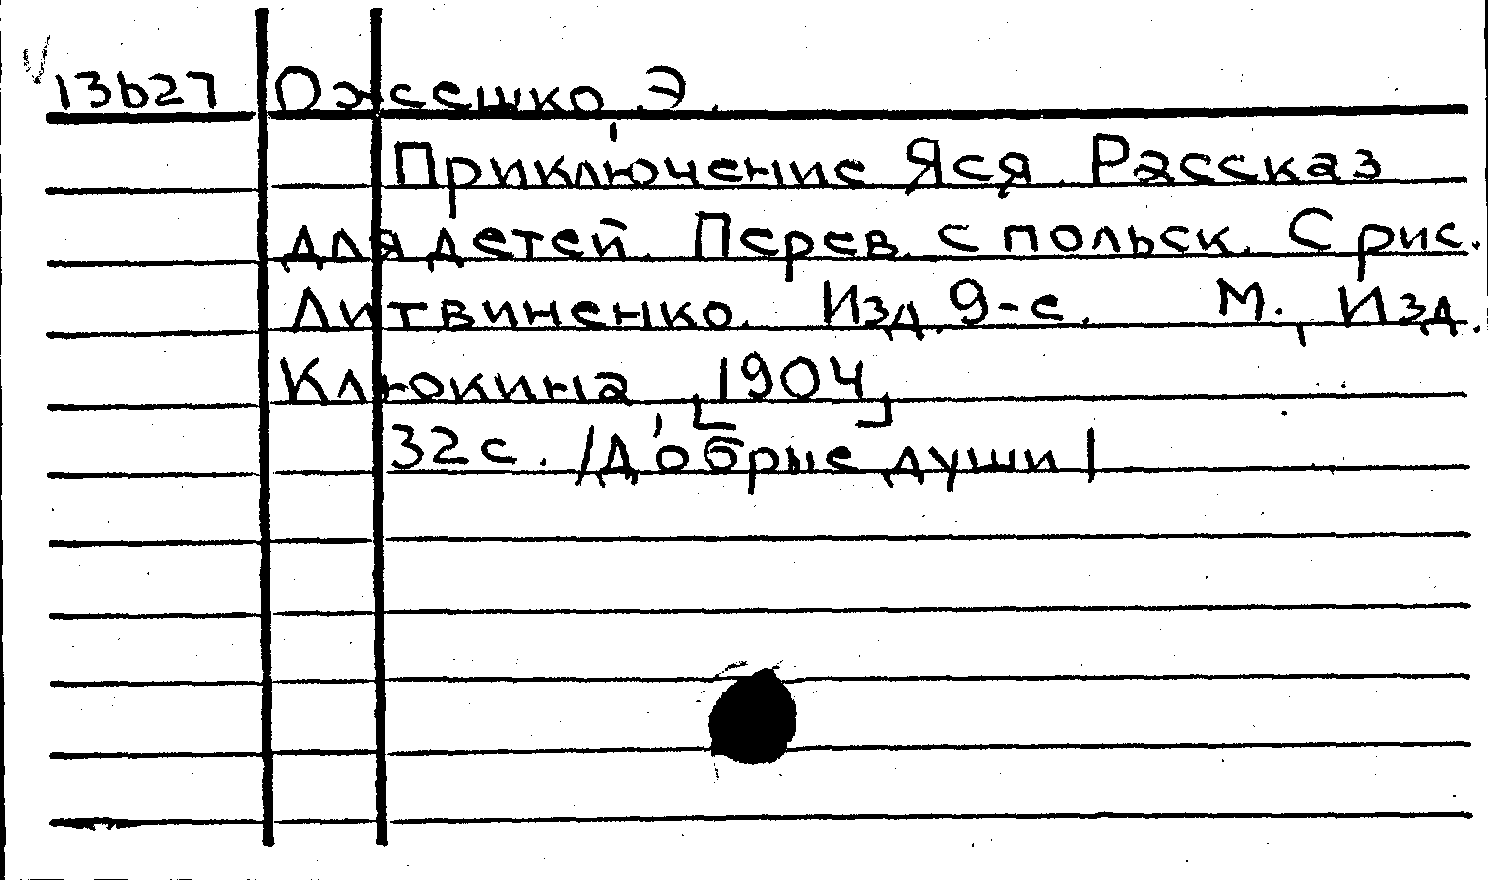 13b27 Ожешко, Э.
Приключение Яся. Рассказ
для детей. Перев. с польск. С рис.
Литвиненко. Изд. 9-е. М., Изд.
Клюкина, [1904]
32 с. /Добрые души/